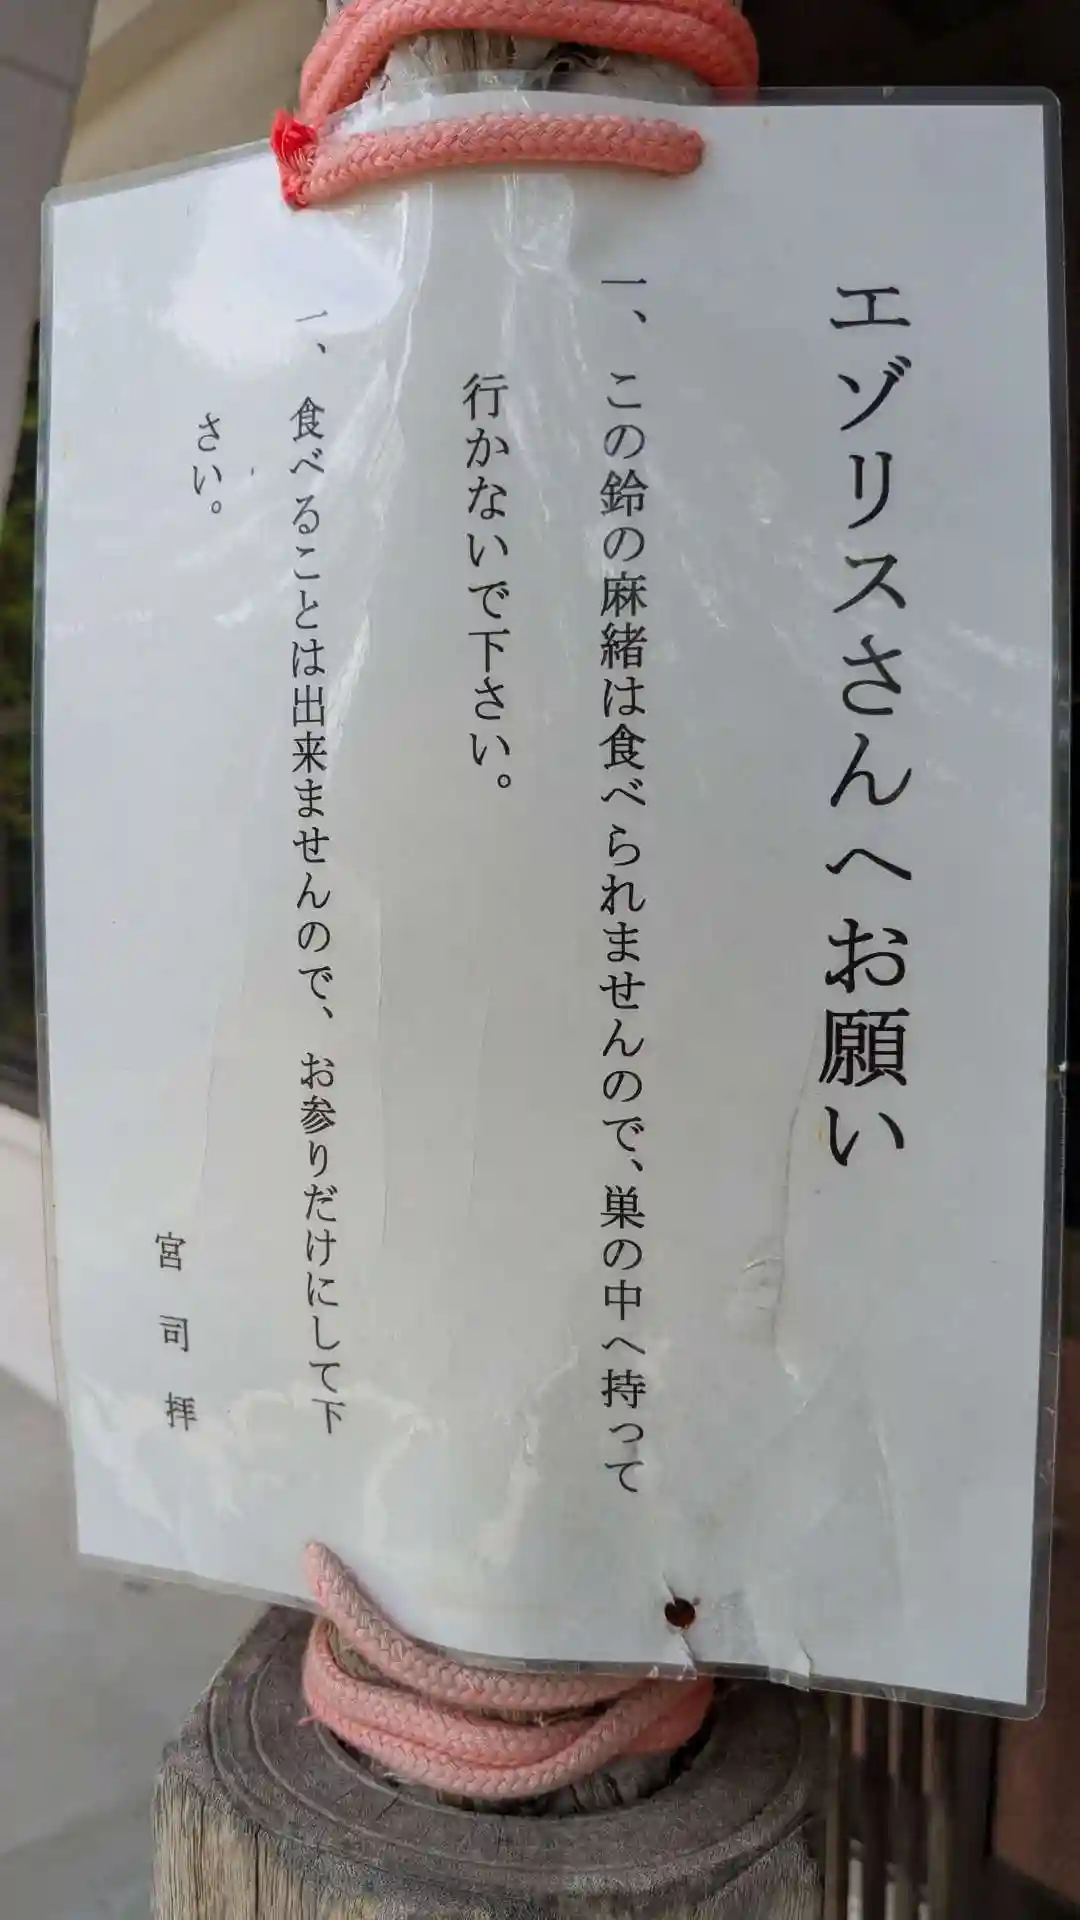 エゾリスさんへお願い
一、この鈴の麻緒は食べられませんので、巣の中へ持って
行かないで下さい。
一、食べることは出来ませんので、お参りだけにして下
さい。
宮司拝